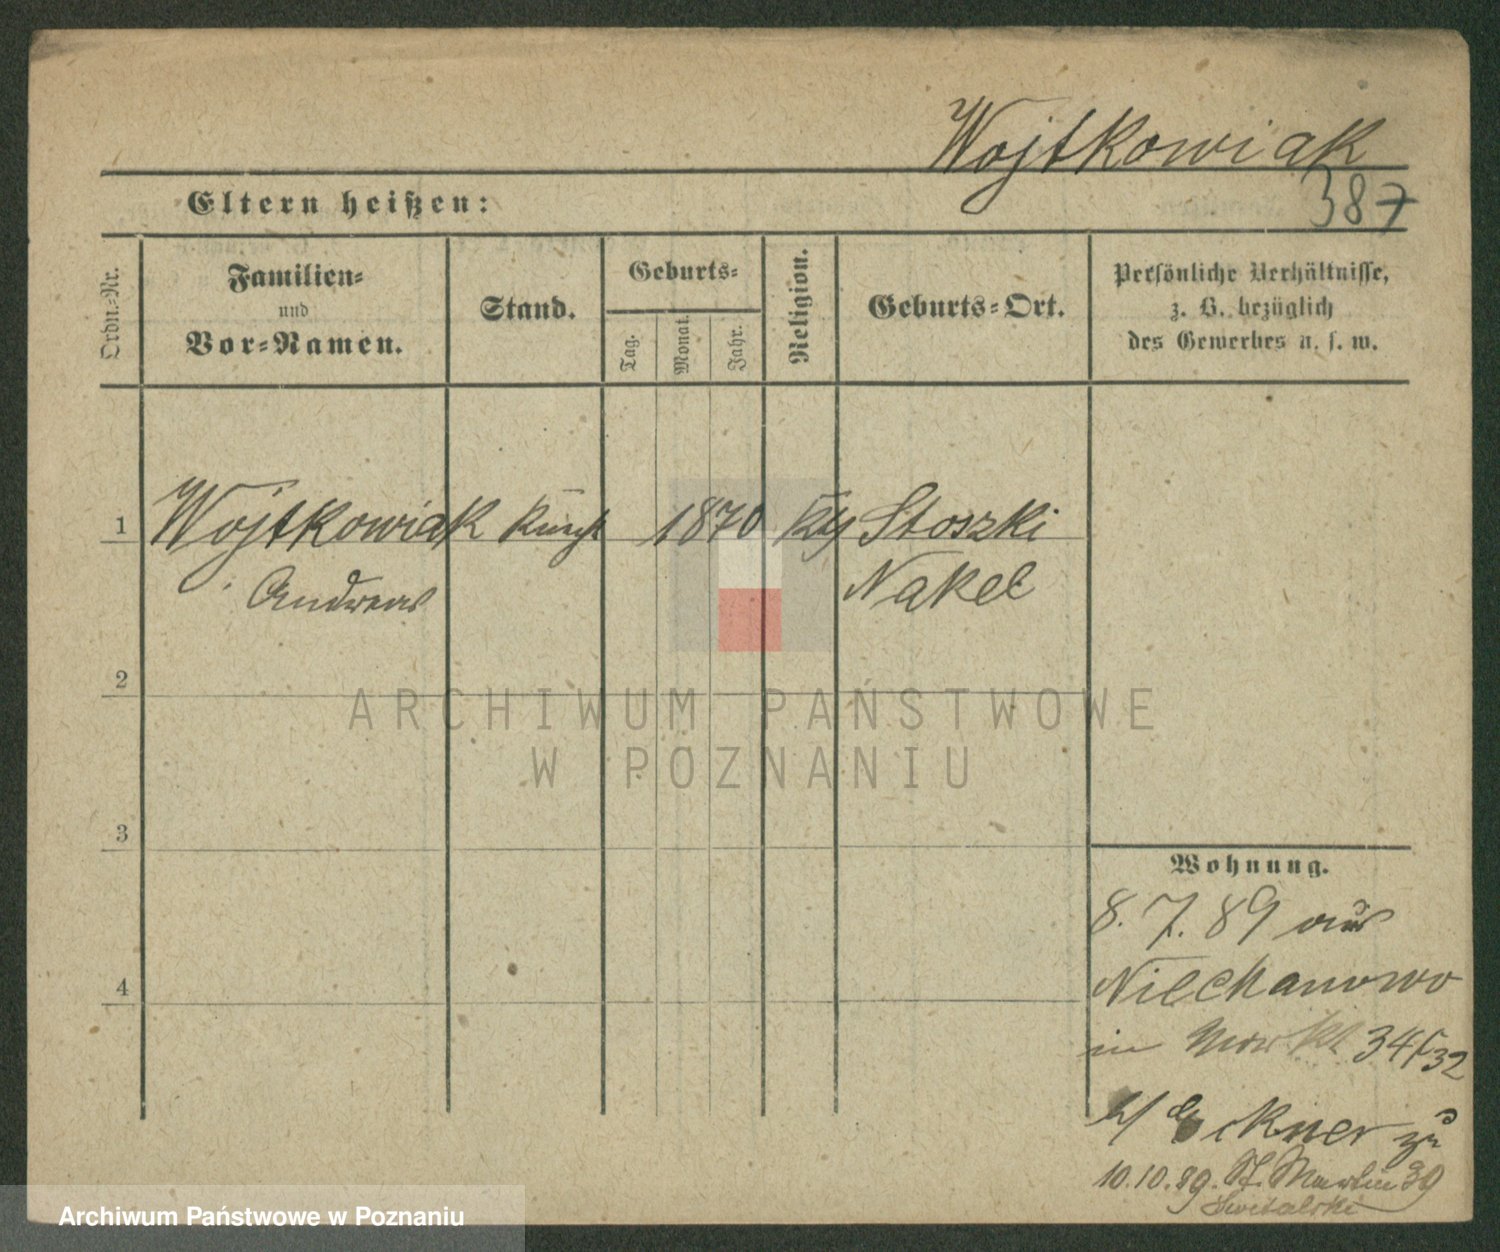 Wojtkowiak
387
Eltern heißen:
Ordn.-Nr.
Familien-
und
Vor-Namen.
Stand.
Geburts-
Tag.
Monat.
Jahr.
Religion.
Geburts-Ort.
Persönliche Verhältnisse,
z. B. bezüglich
des Gewerbes u. s. w.
1 Wojtkowiak 1870 Stoszki
Andreas Nakel
2
ARCHIWUM PAŃSTWOWE
W POZNANIU
3
4
Wohnung.
8. 7. 89 aus
Niechanowo
in Markt 34/32
b/ Eckner zu
10.10.89. St. Martin 39
Switalski
Archiwum Państwowe w Poznaniu